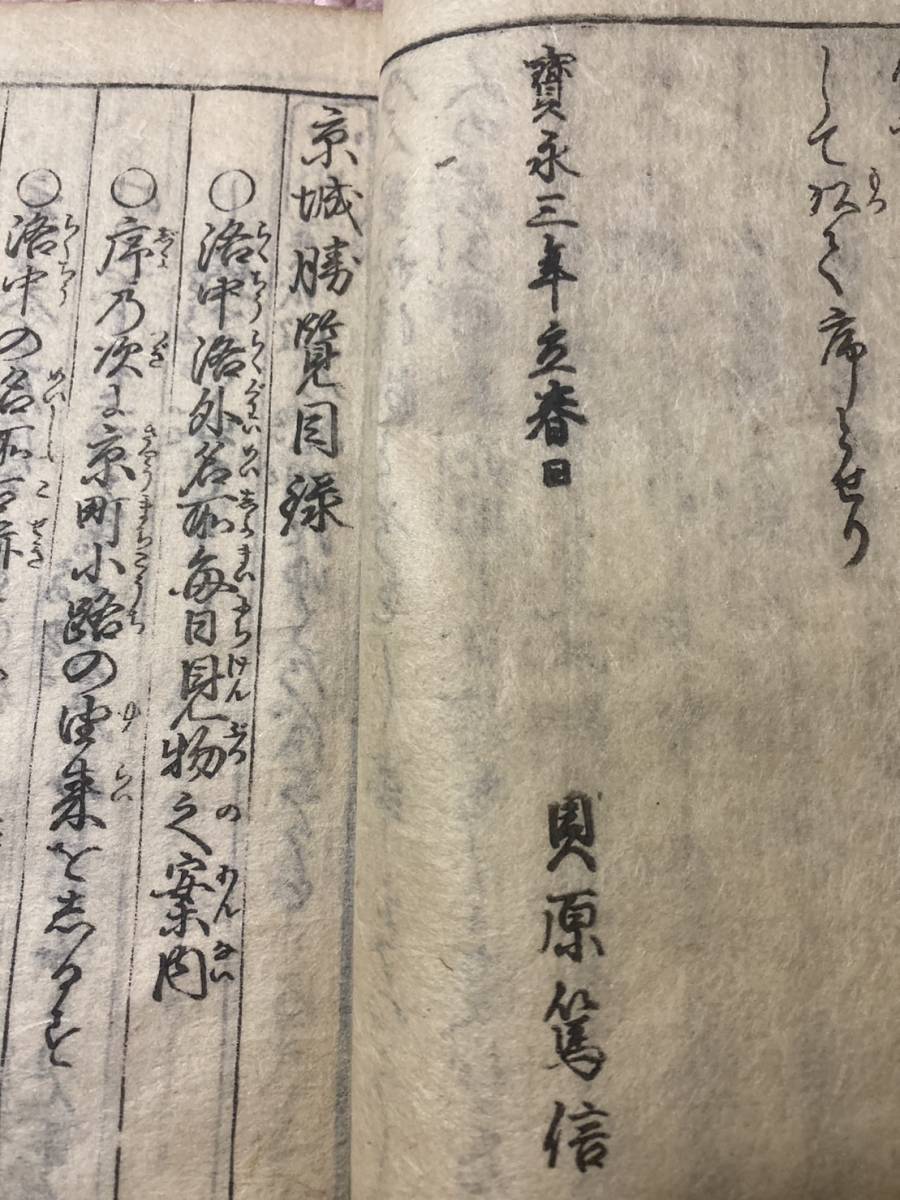 して
序とせり
寳永三年立春日
貝原篤信
京城勝覧目録
○洛中洛外名所毎日見物之案内
○序乃次に京町小路の徃来を志るす
○洛中の名所古跡